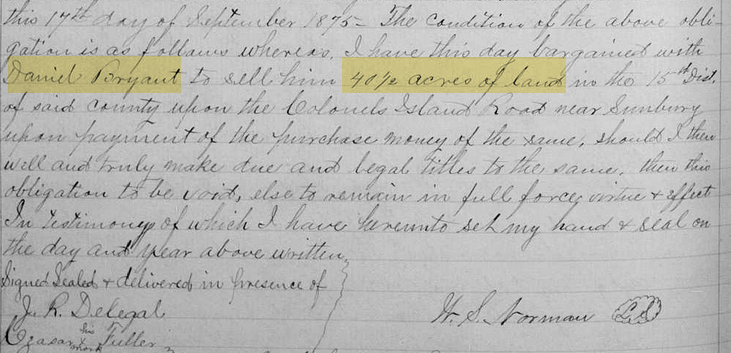 this 17th day of September 1875- The condition of the above obli-
gation is as follows whereas, I have this day bargained with
Daniel Bryant to sell him 40½ acres of land in the 15th Dist.
of said county upon the Colonels Island Road near Sunbury
upon payment of the purchase money of the same, should I then
well and truly make due and legal titles to the same, then this
obligation to be void, else to remain in full force, virtue & effect
In testimony of which I have hereunto set my hand & seal on
the day and year above written,
Signed Sealed & delivered in presence of
J. R. Delegal
W. S. Norman L.S.
Ceasar his X mark Fuller